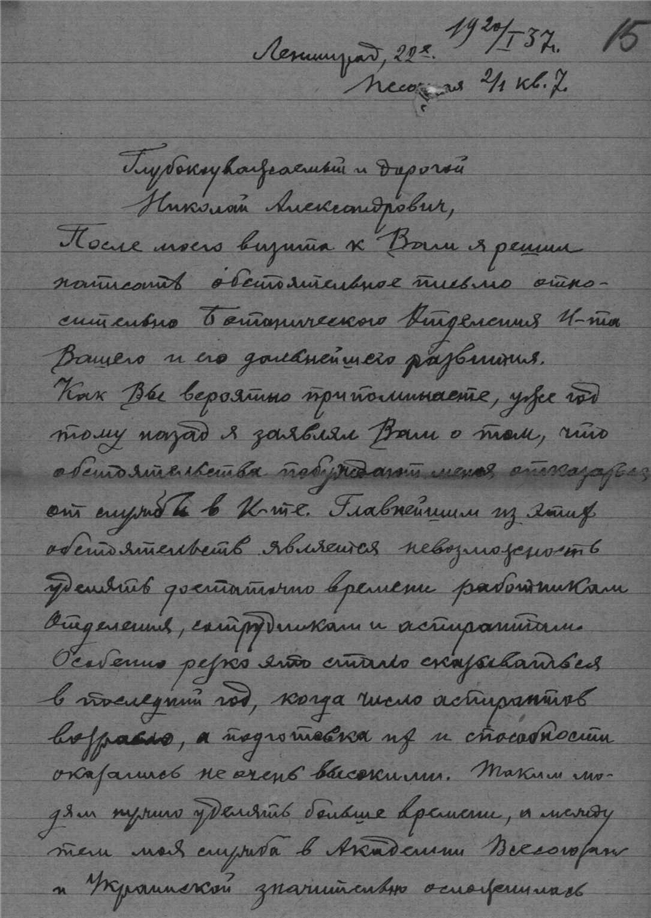 15
19 20/I 37 г.
Ленинград, 22
Песочная 2/1 кв. 7.
Глубокоуважаемый и дорогой
Николай Александрович,
После моего визита к Вам я решил
написать обстоятельное письмо отно-
сительно Ботанического Отделения И-та
Вашего и его дальнейшего развития.
Как Вы вероятно припоминаете, уже год
тому назад я заявлял Вам о том, что
обстоятельства побуждают меня отказаться
от службы в И-те. Главнейшим из этих
обстоятельств является невозможность
уделять достаточно времени работникам
Отделения, сотрудникам и аспирантам.
Особенно резко это стало сказываться
в последний год, когда число аспирантов
возросло, а подготовка их и способности
оказались не очень высокими. Таким лю-
дям нужно уделять больше времени, а между
тем моя служба в Академии Всесоюзн
и Украинской значительно осложнилась